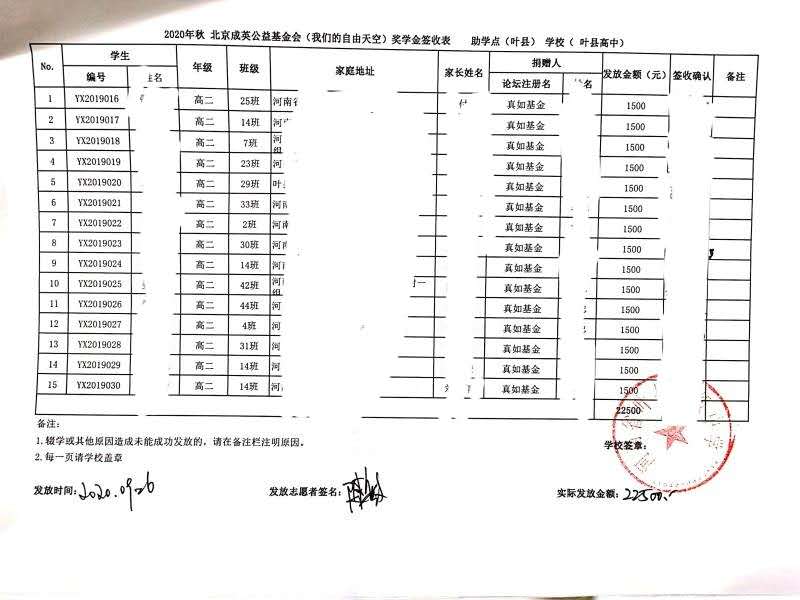 2020年秋 北京成英公益基金会(我们的自由天空)奖学金签收表 助学点(叶县) 学校( 叶县高中)
No. 学生 年级 班级 家庭地址 家长姓名 捐赠人 发放金额(元) 签收确认 备注
编号 姓名 论坛注册名 名
1 YX2019016 高二 25班 河南省 付 真如基金 1500
2 YX2019017 高二 14班 河 真如基金 1500
3 YX2019018 高二 7班 河 组 真如基金 1500
4 YX2019019 高二 23班 河 真如基金 1500
5 YX2019020 高二 29班 叶县 真如基金 1500
6 YX2019021 高二 33班 河南 真如基金 1500
7 YX2019022 高二 2班 河南 真如基金 1500
8 YX2019023 高二 30班 河南 真如基金 1500
9 YX2019024 高二 14班 河南 真如基金 1500
10 YX2019025 高二 42班 河南 组 真如基金 1500
11 YX2019026 高二 44班 河 真如基金 1500
12 YX2019027 高二 4班 河 真如基金 1500
13 YX2019028 高二 31班 河 真如基金 1500
14 YX2019029 高二 14班 河 真如基金 1500
15 YX2019030 高二 14班 河 真如基金 1500
22500
备注:
1.辍学或其他原因造成未能成功发放的,请在备注栏注明原因。
2.每一页请学校盖章
学校签章:
发放时间:2020.09.26 发放志愿者签名: 实际发放金额:22500.